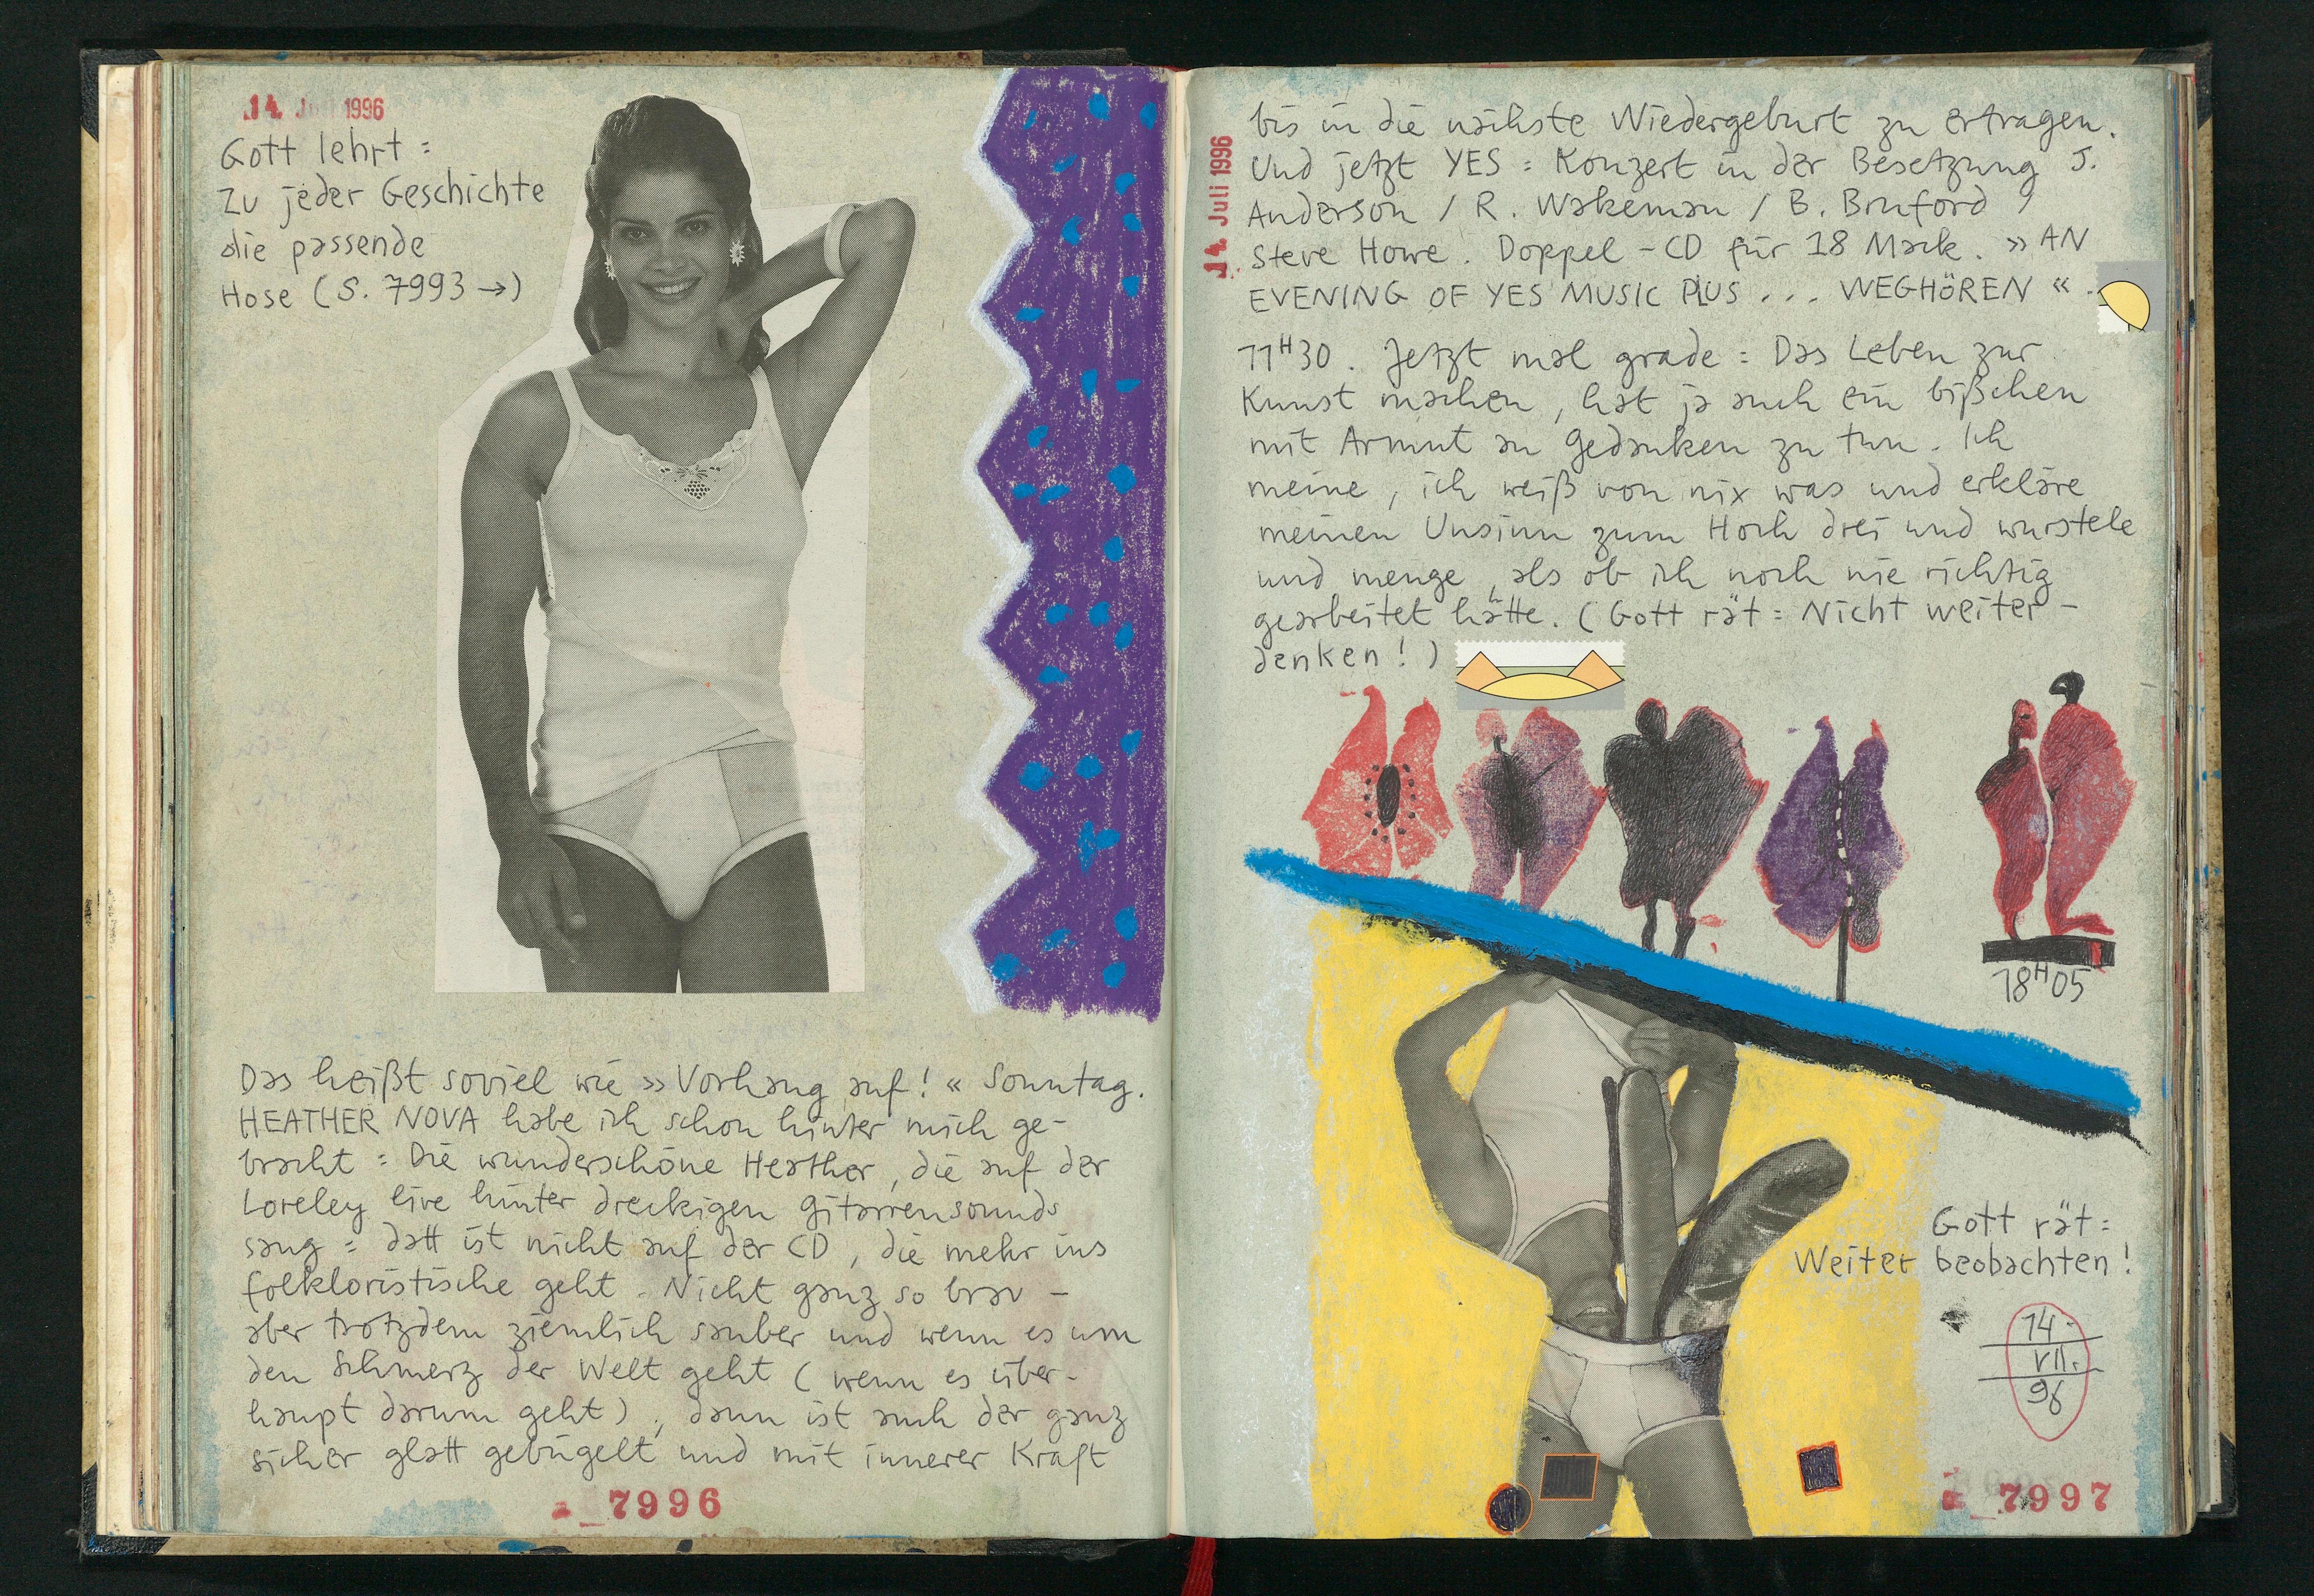 14. Juli 1996
Gott lehrt :
Zu jeder Geschichte
die passende
Hose (S. 7993 →)
Das heißt soviel wie »Vorhang auf!« Sonntag.
HEATHER NOVA habe ich schon hinter mich ge-
bracht : Die wunderschöne Heather, die auf der
Loreley live hinter dreckigen Gitarrensounds
sang : datt ist nicht auf der CD, die mehr ins
folkloristische geht. Nicht ganz so brav –
aber trotzdem ziemlich sauber und wenn es um
den Schmerz der Welt geht (wenn es über-
haupt darum geht), dann ist auch der ganz
sicher glatt gebügelt und mit innerer Kraft
7996
14. Juli 1996
bis in die nächste Wiedergeburt zu ertragen.
Und jetzt YES : Konzert in der Besetzung J.
Anderson / R. Wakeman / B. Bruford /
Steve Howe. Doppel-CD für 18 Mark. »AN
EVENING OF YES MUSIC PLUS ... WEGHÖREN«.
11H30. Jetzt mal grade : Das Leben zur
Kunst machen, hat ja auch ein bißchen
mit Armut an Gedanken zu tun. Ich
meine, ich weiß von nix was und erkläre
meinen Unsinn zum Hoch drei und wurstele
und menge, als ob ich noch nie richtig
gearbeitet hätte. (Gott rät : Nicht weiter-
denken!)
18H05
Gott rät :
Weiter beobachten!
14.
VII.
96
7997